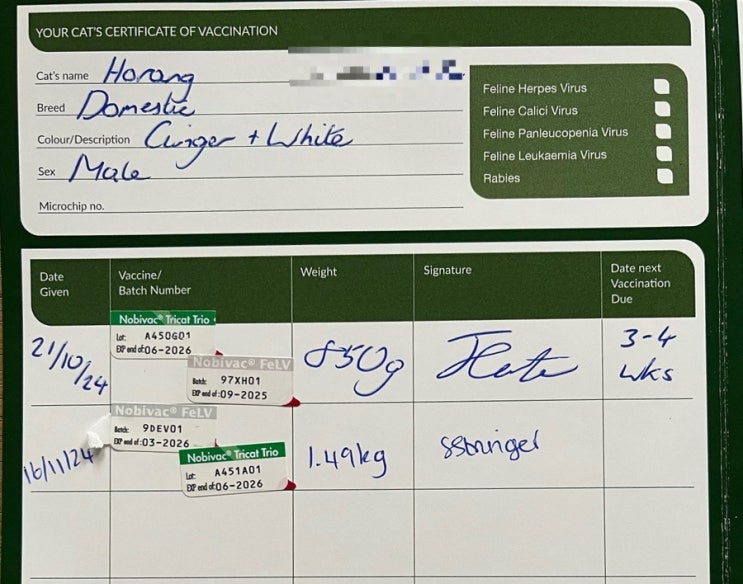 YOUR CAT'S CERTIFICATE OF VACCINATION
Cat's name Horang
Breed Domestic
Colour/Description Ginger + White
Sex Male
Microchip no.
Feline Herpes Virus
Feline Calici Virus
Feline Panleucopenia Virus
Feline Leukaemia Virus
Rabies
Date Given
Vaccine/ Batch Number
Weight
Signature
Date next Vaccination Due
21/10/24
Nobivac® Tricat Trio
Lot: A450G01
EXP end of:06-2026
Nobivac® FeLV
Batch: 97XH01
EXP end of:09-2025
850g
3-4 wks
16/11/24
Nobivac® FeLV
9DEV01
EXP end of:03-2026
Nobivac® Tricat Trio
Lot: A451A01
EXP end of:06-2026
1.49kg
SStringer